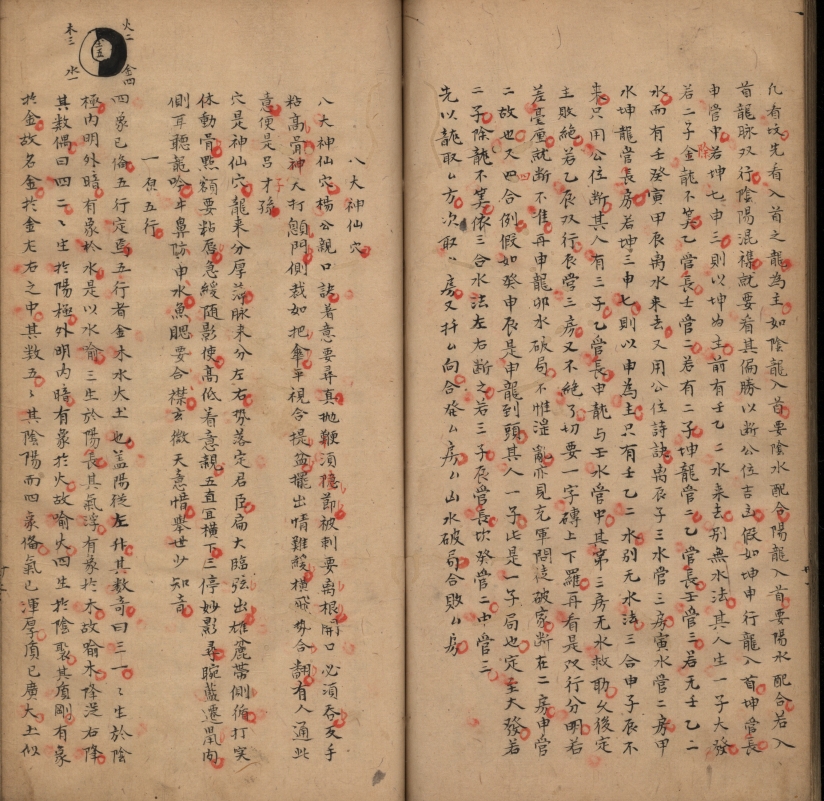 凢看坟先看入首之龍為主如陰龍入首要陰水配合陽龍入首要陽水配合若入
首龍脉双行陰陽混襍就要看其偏勝以断公位吉凶假如坤申行龍入首坤管長
申管中若坤七申三則以坤为主前有壬乙二水来去別無水法其人生一子大發
若二子金龍不筭乙管長壬管二若有二子坤龍管二乙管長壬管三若无壬乙二
除
水而有壬癸寅甲辰离水来去又用公位詩訣离辰子三水管三房寅水管二房甲
水坤龍管長房若坤三申七則以申為主只有壬乙二水別无水法三合申子辰不
来只用公位断其人有三子乙管長申龍与壬水管中其第三房无水救助久後定
主敗絶若乙辰双行辰管三房又不絶了切要一字磚上下羅再看是双行分明若
差毫厘就断不准再申龍卯水破局不惟滛亂亦見充軍問徒破家断在二房申管
二故也又四合例假如癸申辰是申龍到頭其人一子此是一子局也定主大發若
四
二子除龍不筭依三合水法左右断之若三子辰管長坎癸管二申管三
先以龍取厶方次取厶房又扦厶向合癸厶房厶山水破局合敗厶房
八大神仙穴
八大神仙穴楊公親口訣著意要尋真抛鞭須穏節被刺要离根開口必須吞叉手
粘高骨神人打顖門側裁如把傘平視合提盆擺出情難鮫橫飛势合翻有人通此
意便是吕才孫
子
穴是神仙穴龍来分厚薄脉来分左右势落定君臣扁大臨弦出雄麄帶側循打実
体動骨㸃額要粘唇急緩随影使高低着意親五直冝橫下三停妙影尋睕藍遷鼎肉
側耳聽龍吟牛鼻防申水魚腮要合襟玄微天意惜舉世少知音
一原五行
火二
木三
土五
金四
水一
四象已偹五行定焉五行者金木水火土也蓋陽從左升其数奇曰三一一生於陰
極内明外暗有象於水是以水喻三生於陽長其氣浮有象於木故喻木降㳒右降
其数偶曰四二二生於陽極外明内暗有象於火故喻火四生於陰聚其质剛有象
於金故名金於金左右之中其数五五其陰陽而四象偹氣已渾厚质已廣大土似